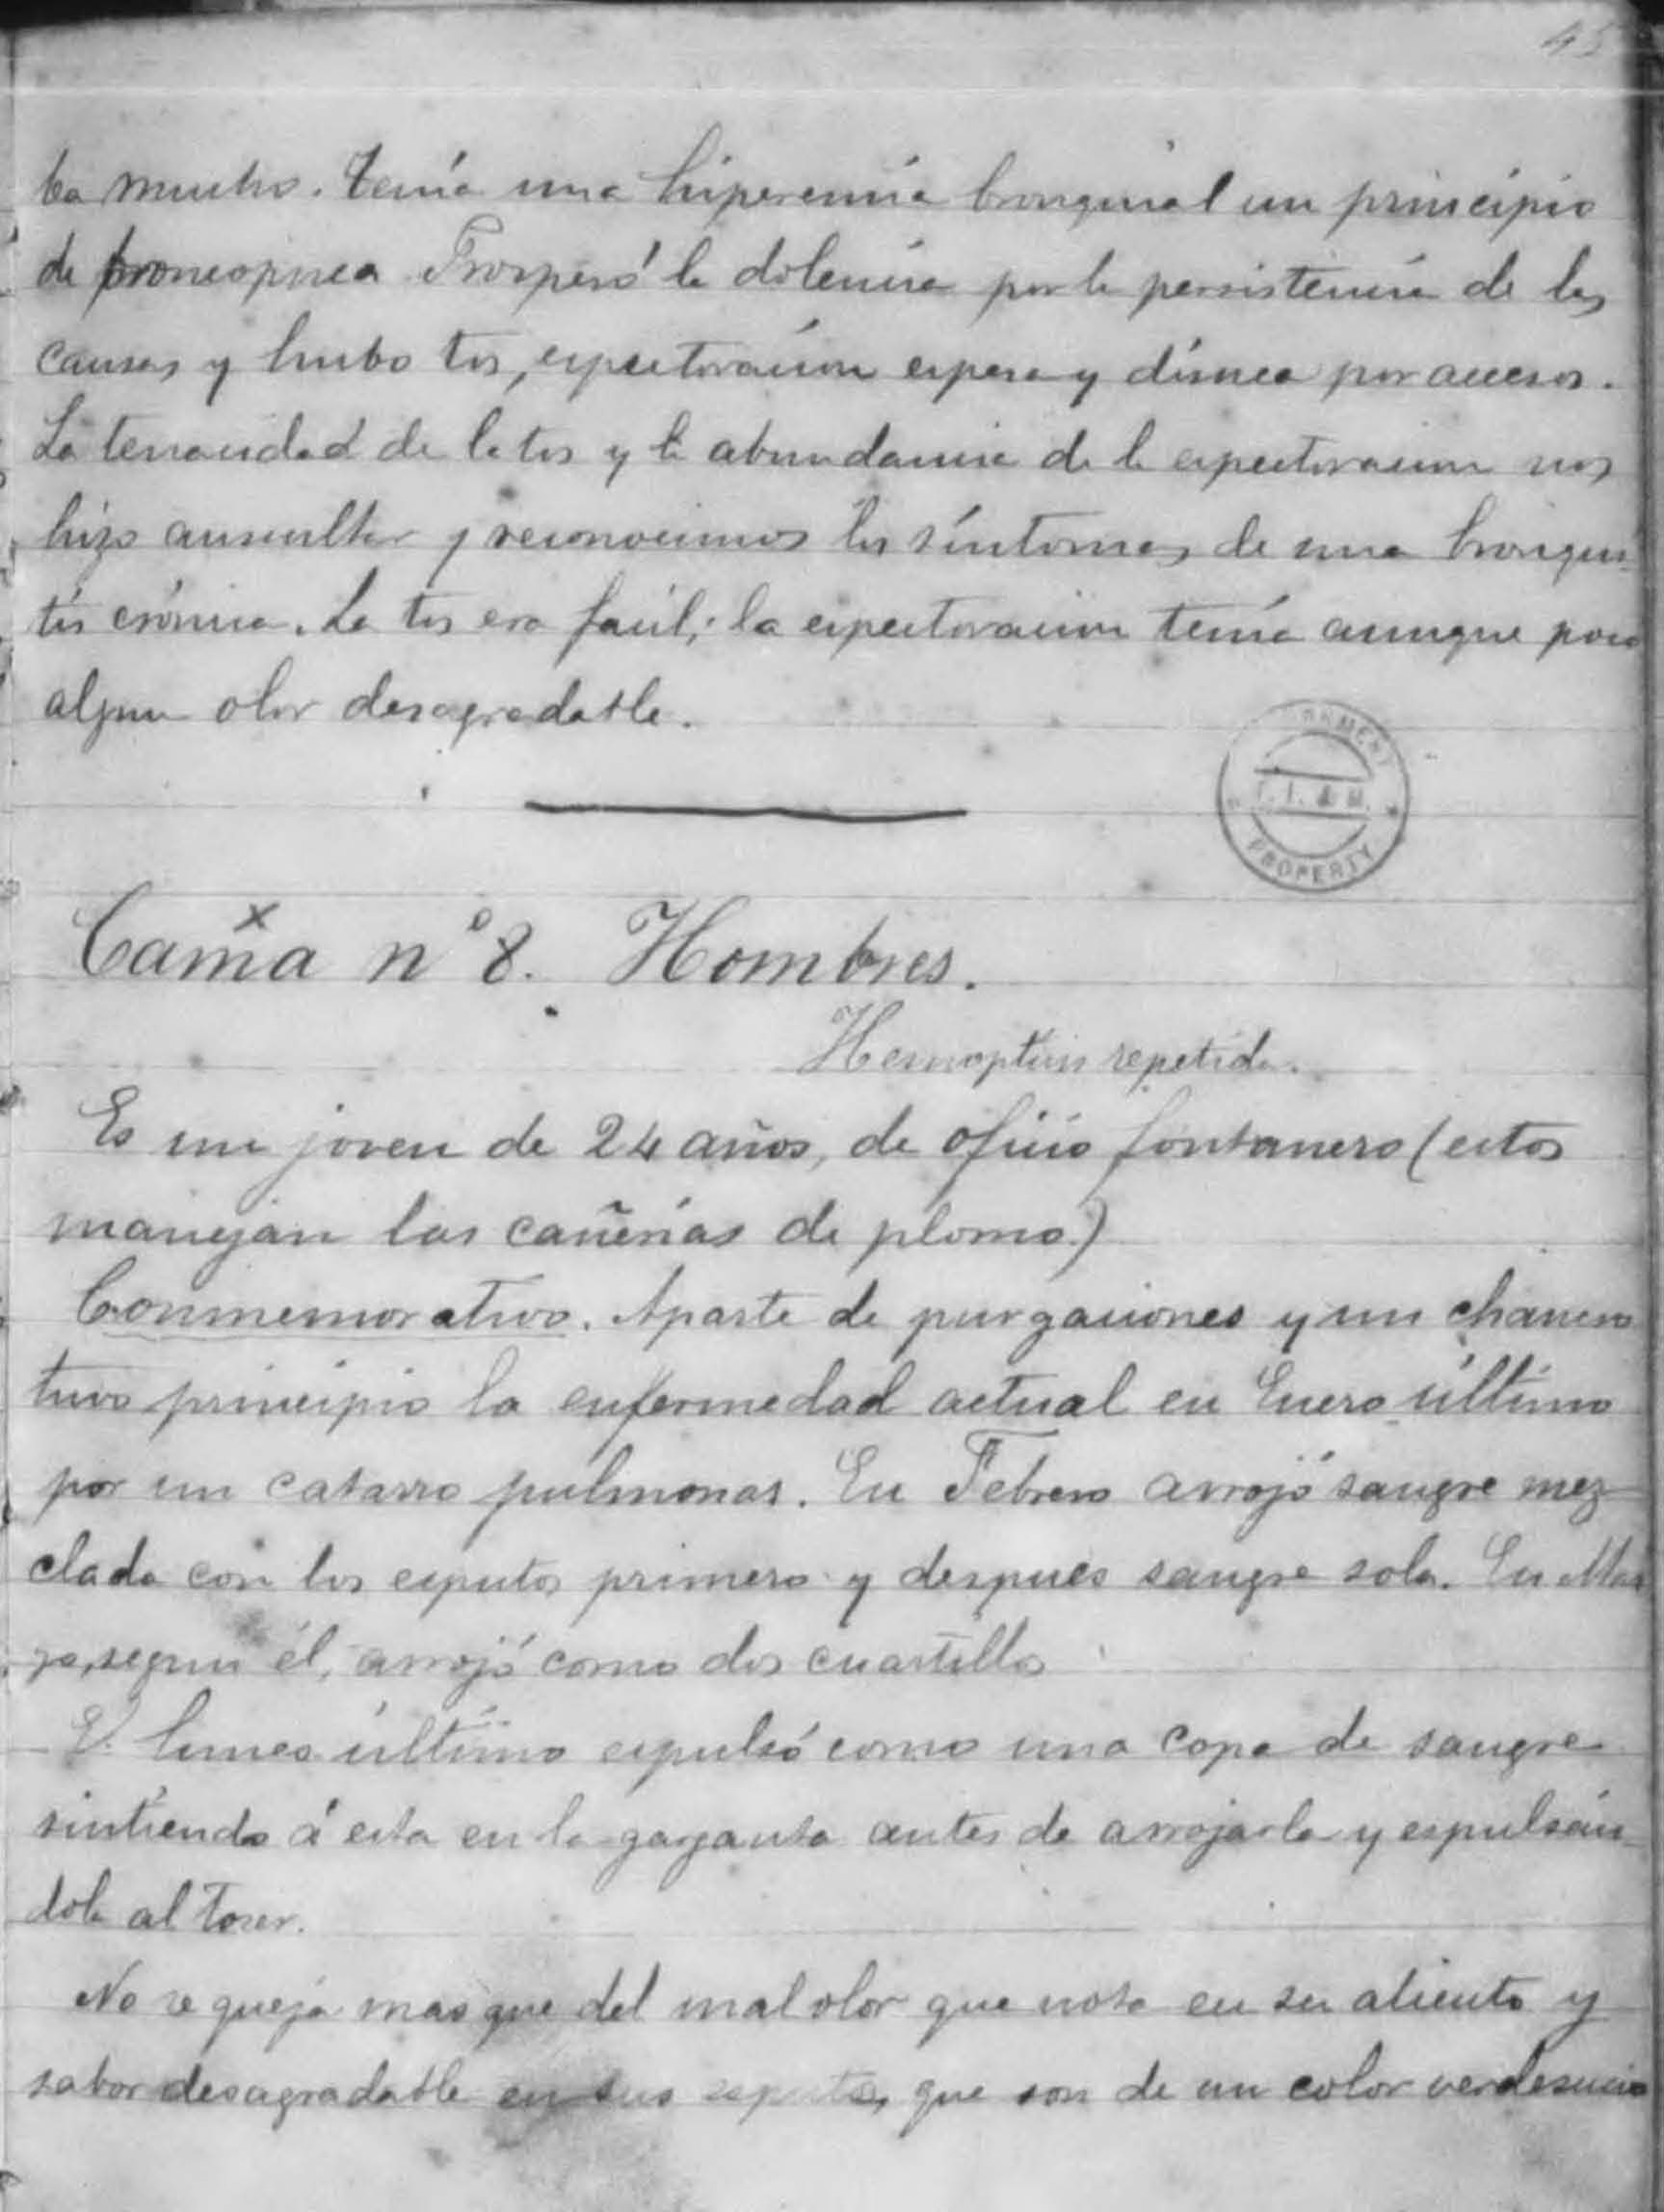 45
ba mucho. Tenía una hiperemia bronquial un principio
de broncopnea Prosperó la dolencia por la persistencia de las
causas y hubo tos, expectoracion espesa y disnea por accesos.
La tenacidad de la tos y la abundancia de la expectoracion nos
hizo auscultar y reconocimos los síntomas de una bronqui-
tis crónica. La tos era facil; la expectoracion tenía aunque poco
algun olor desagradable.
T.I. & M.
PROPERTY
x
Cama nº 8. Hombres.
Hemoptisis repetida.
Es un joven de 24 años, de oficio fontanero (estos
manejan las cañerías de plomo)
Conmemorativo. Aparte de purgaciones y un chancro
tuvo principio la enfermedad actual en Enero último
por un catarro pulmonar. En Febrero arrojó sangre mez-
clada con los esputos primero y despues sangre sola. En Mar
zo, segun él, arrojó como dos cuartillos
El lunes último espulsó como una copa de sangre
sintiendo á esta en la garganta antes de arrojarla y espulsán-
dola al toser.
No se queja mas que del mal olor que nota en su aliento y
sabor desagradable en sus esputos, que son de un color verdesucio